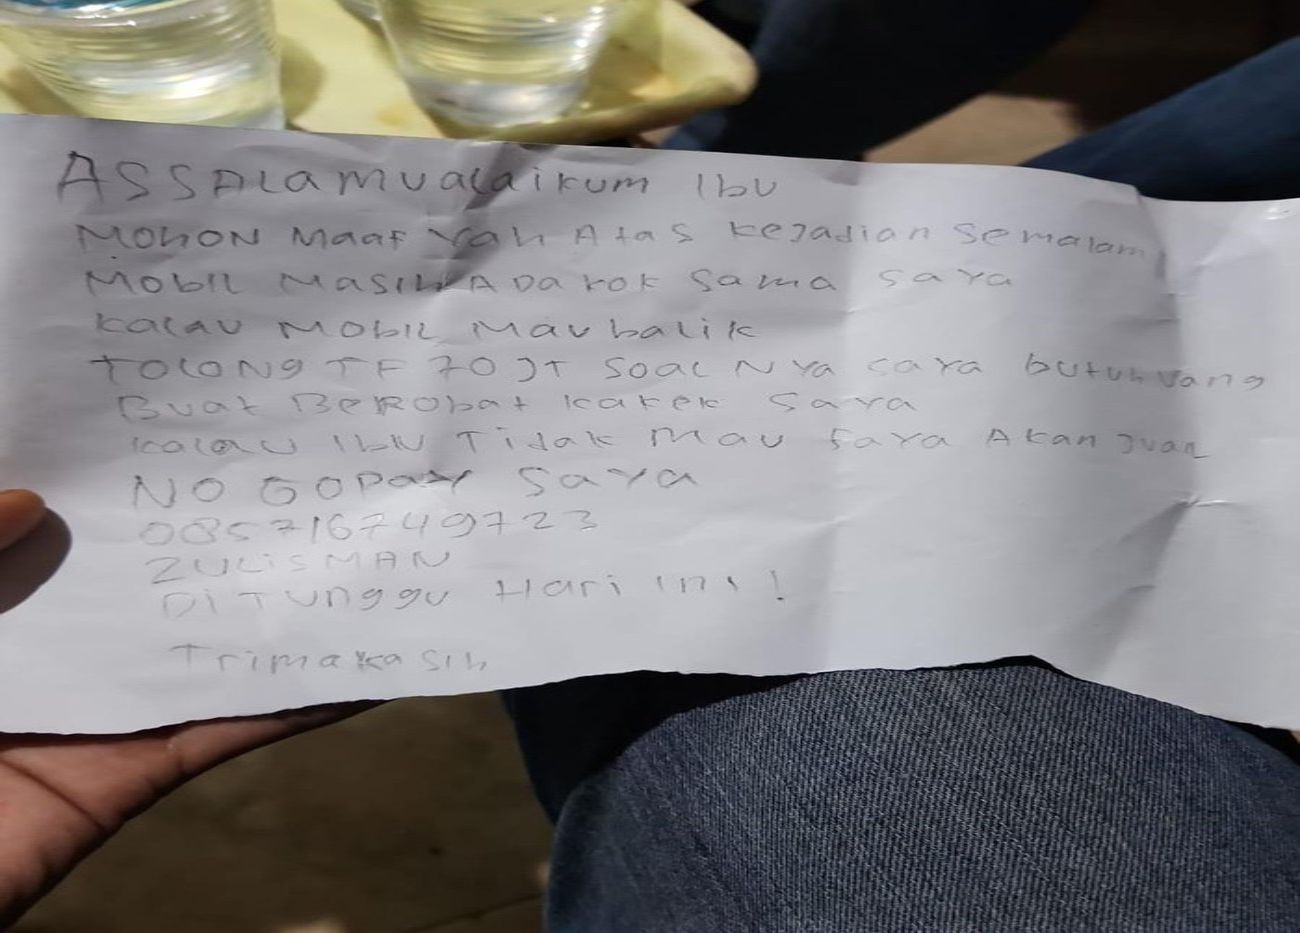 ASSALamualaikum Ibu
MOHON Maaf Yah Atas Kejadian Semalam
MOBIL MASIH ADA KOK Sama Saya
Kalau MOBIL Mau balik
TOLONG TF 70 JT SOAL NYA saya butuh uang
Buat BeRObat Kakek Saya
Kalau Ibu Tidak Mau Saya Akan Jual
NO GOPAY Saya
085716749723
ZULISMAN
Di TUnggu Hari Ini!
Trimakasih